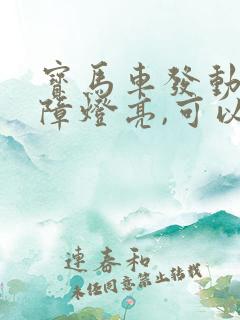 寶馬車發動
障燈亮,可以
連春和
未经同意禁止转载